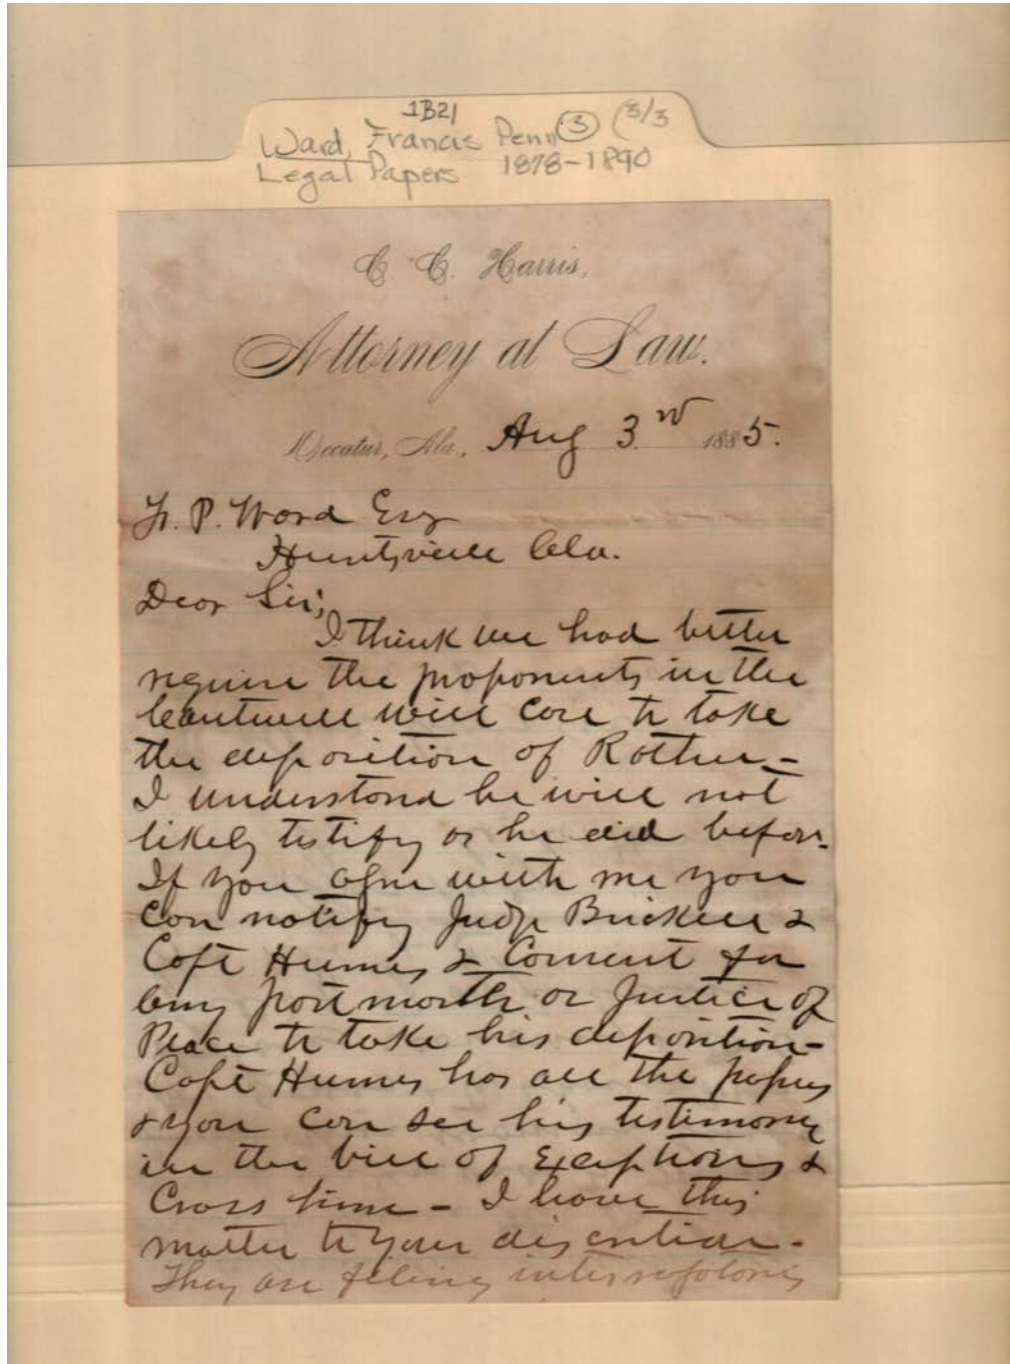 1B21
Ward, Francis Penn (3) (3/3
Legal Papers 1878-1890
C. C. Harris,
Attorney at Law.
Decatur, Ala., Aug 3rd 1885.
F. P. Ward Esq
Huntsville Ala.
Dear Sir;
I think we had better
require the proponents in the
Cantwell will case to take
the deposition of
I understand he will not
likely testify as he did before.
If you agree with me you
can notify Judge Brickell &
Capt Humes & consent for
any post master or Justice of
Peace to take his deposition-
Capt Humes has all the papers
& you can see his testimony
in the bill of Exceptions &
Cross him - I leave this
matter to your discretion -
They are filing interrogatories